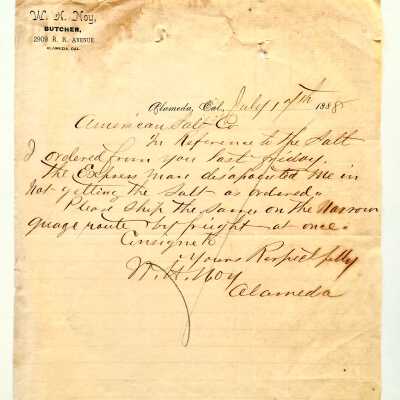 W. H. Noy,
BUTCHER,
2909 R. R. AVENUE
ALAMEDA, CAL.
Alameda, Cal. July 17th 1888
American Salt Co
In Reference to the Salt
I ordered from you last Friday.
The Express man disapointed me in
Not getting the Salt as ordered.
Please Ship the same on the Narrow
guage route by freight at once.
Consigne to
Yours Respectfully
W. H. Noy
Alameda